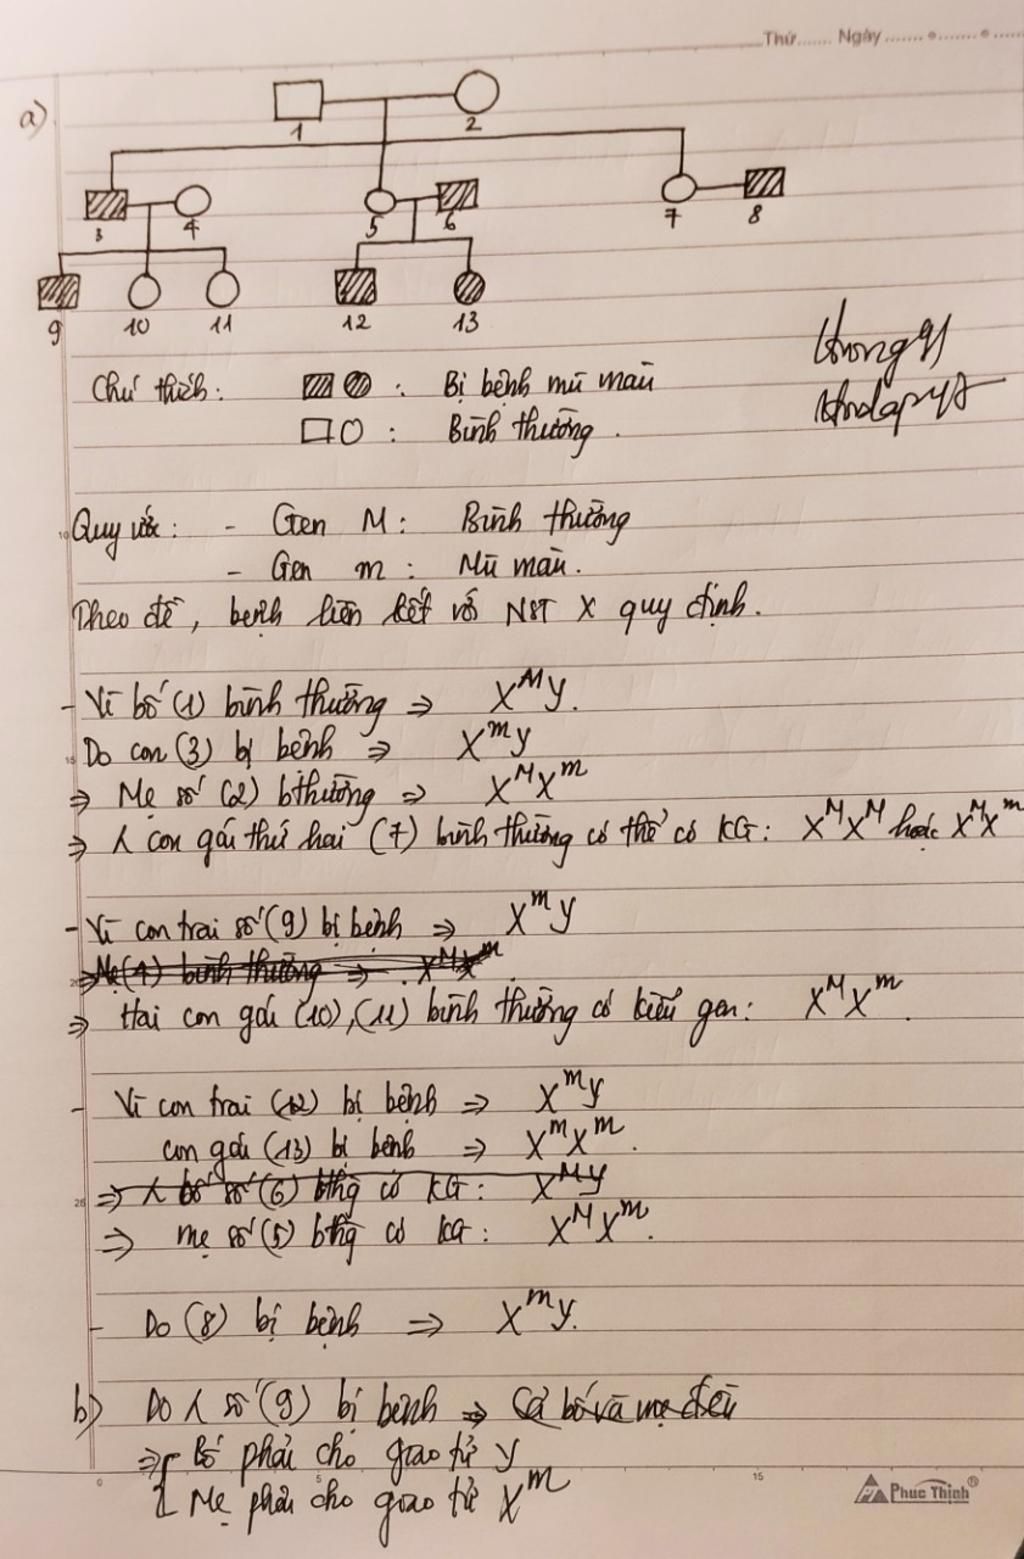 Thứ....... Ngày.......
a)
1
2
3
4
5
6
7
8
9
10
11
12
13
Chú thích: : Bị bệnh mù màu
: Bình thường.
Quy ước: - Gen M: Bình thường
- Gen m: Mù màu.
Theo đề, bệnh liên kết với NST X quy định.
- Vì bố (1) bình thường ⇒ X^M Y.
Do con (3) bị bệnh ⇒ X^m Y
⇒ Mẹ số (2) bthường ⇒ X^M X^m
⇒ con gái thứ hai (7) bình thường có thể có KG: X^M X^M hoặc X^M X^m
- Vì con trai số (9) bị bệnh ⇒ X^m Y
⇒ Mẹ (4) bình thường ⇒ X^M X^m
⇒ Hai con gái (10), (11) bình thường có kiểu gen: X^M X^m.
- Vì con trai (12) bị bệnh ⇒ X^m Y
con gái (13) bị bệnh ⇒ X^m X^m.
⇒ bố số (6) bthg có KG: X^M Y
⇒ mẹ số (5) bthg có KG: X^M X^m.
- Do (8) bị bệnh ⇒ X^m Y.
b) Do số (9) bị bệnh ⇒ Cả bố và mẹ đều
⇒ Bố phải cho giao tử Y
Mẹ phải cho giao tử X^m
10
15
20
25
0
5
15
Phuc Thinh®